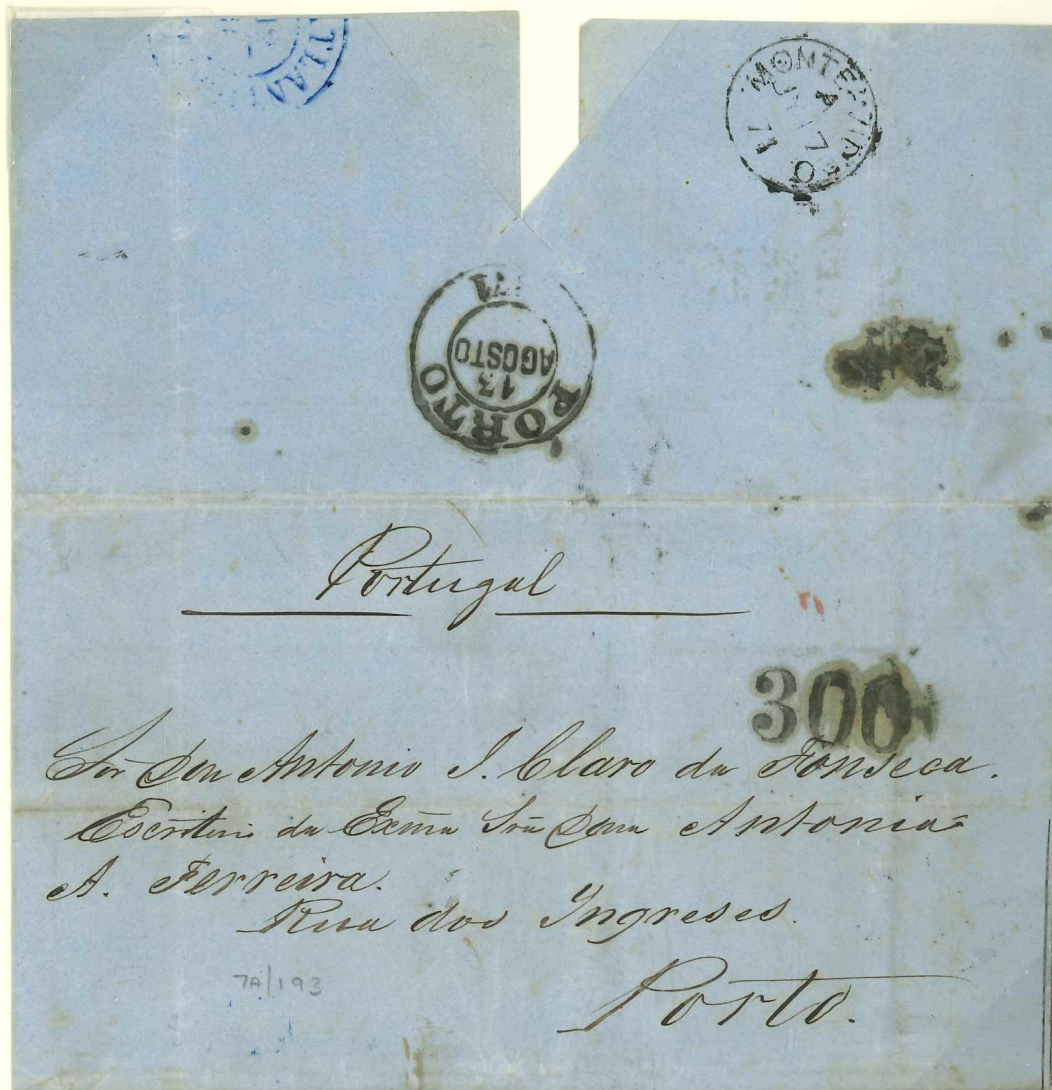 TLAN
MONTEVIDEO
A
17
PORTO
13
AGOSTO
Portugal
300
Sor Don Antonio J. Claro da Fonseca.
Escritorio da Exma Sra Dona Antonia
A. Ferreira.
Rua dos Ingreses.
7A/193
Porto.